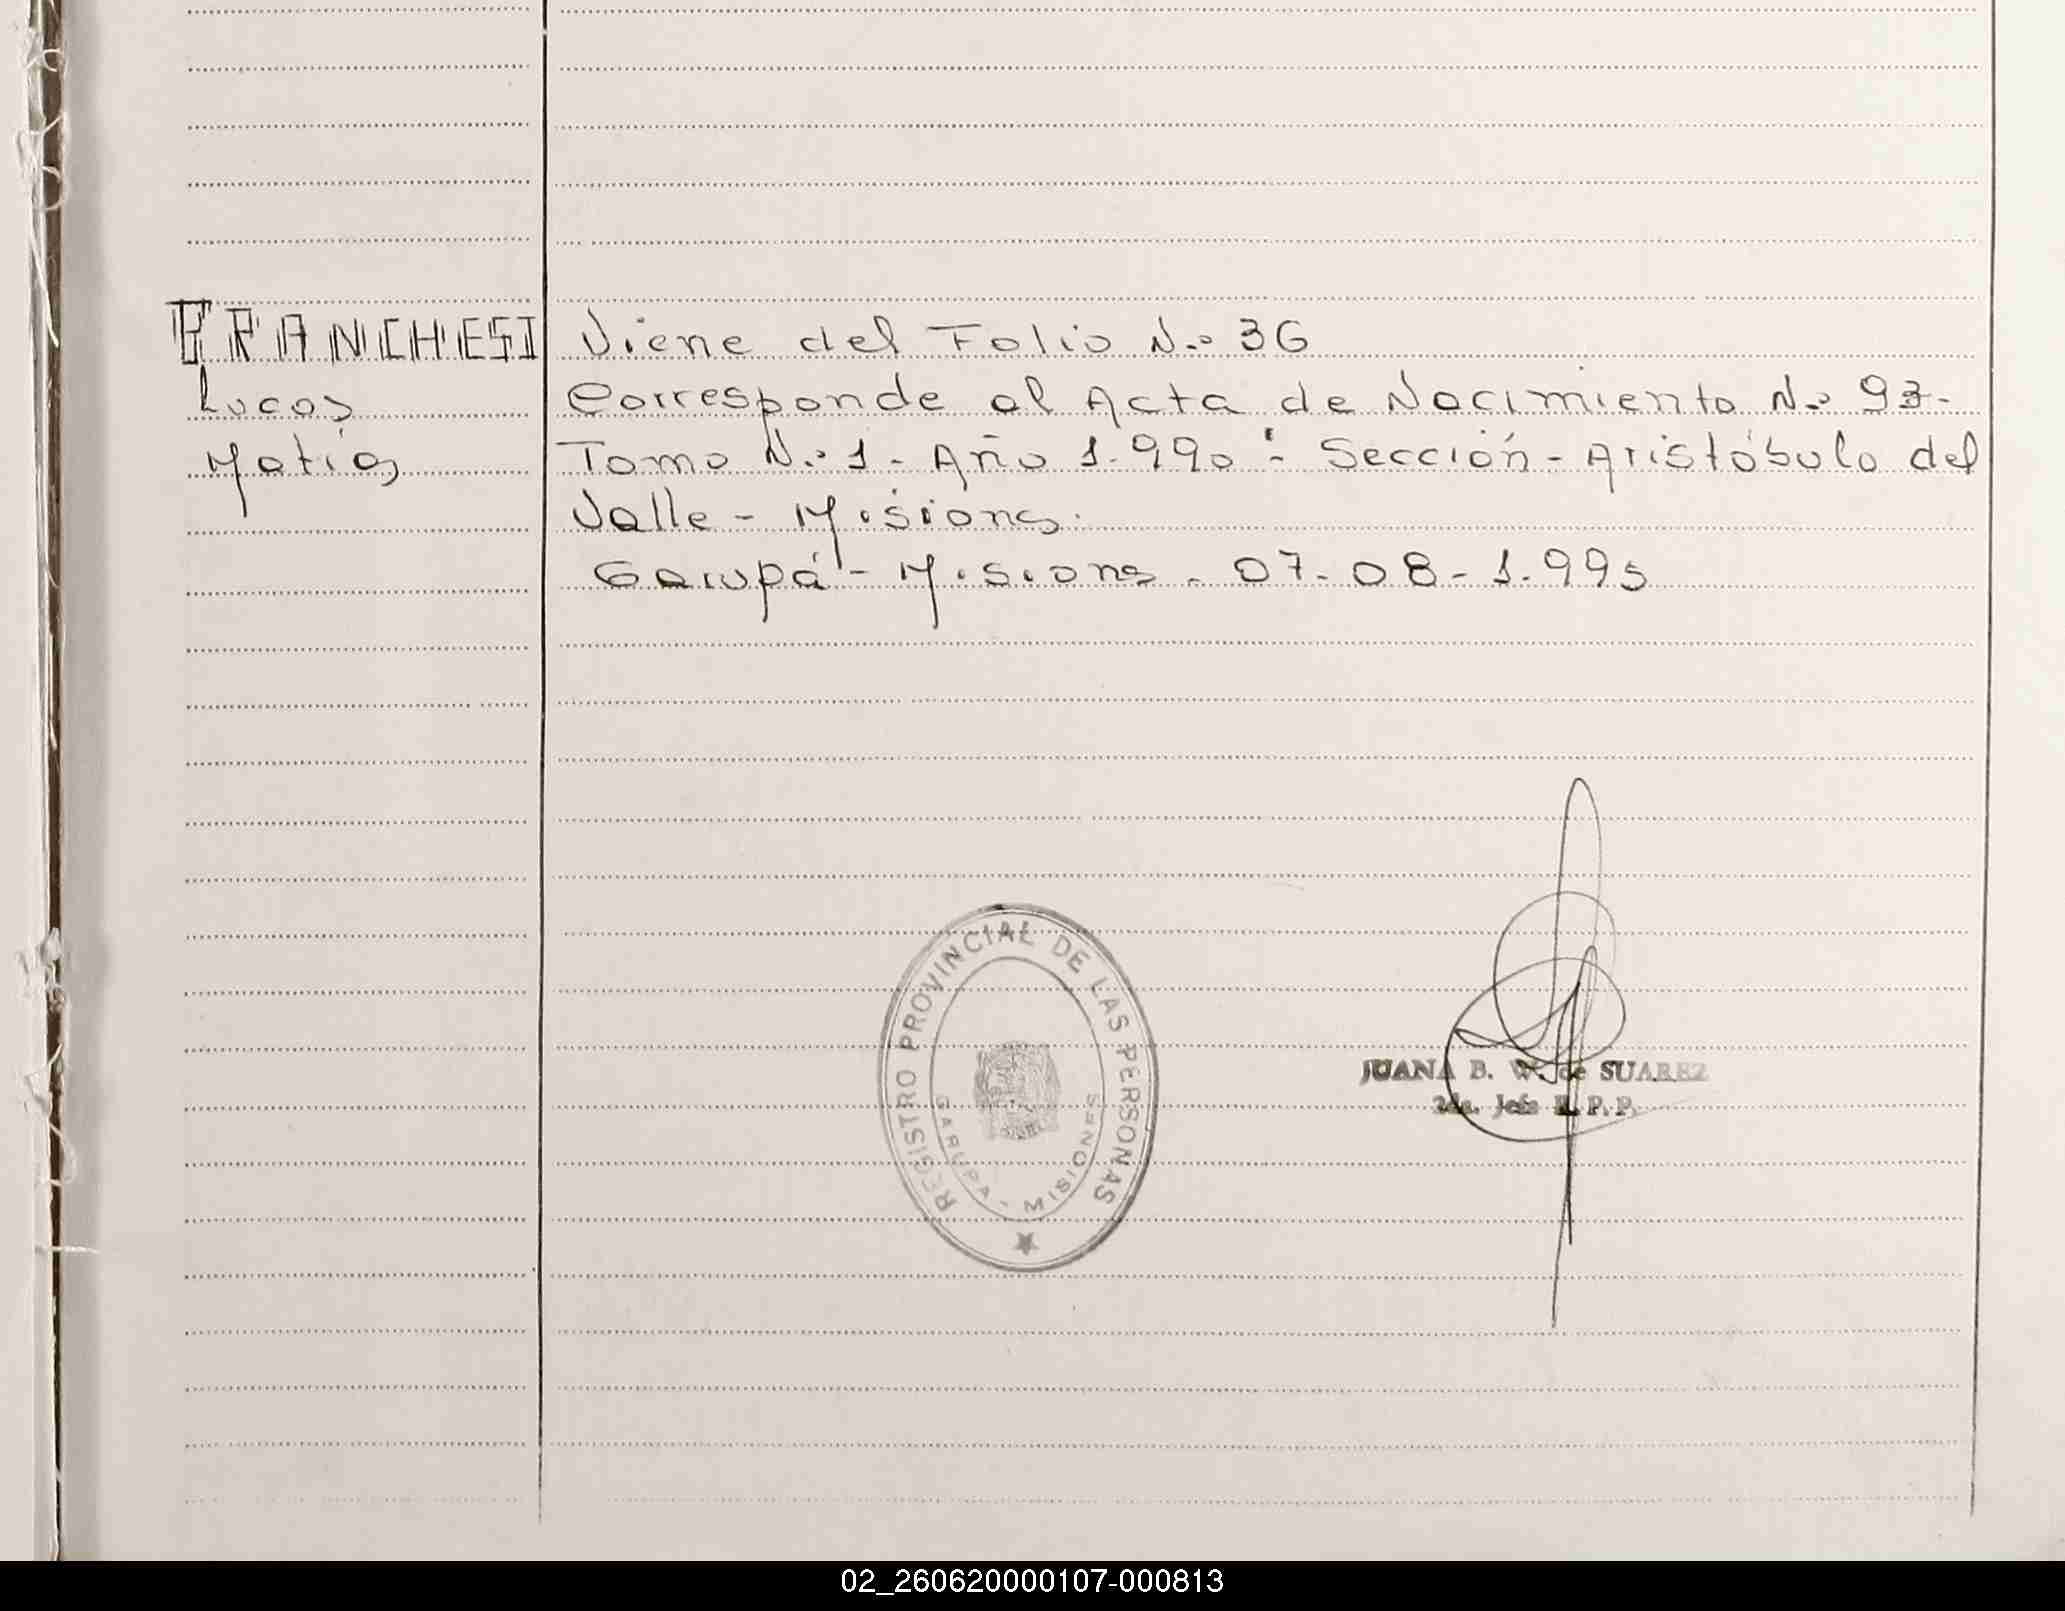 FRANCHESI
Lucas
Matías
Viene del Folio N.º 36
Corresponde al Acta de Nacimiento N.º 93-
Tomo N.º 1 - Año 1.990 - Sección - Aristóbulo del
Valle - Misiones.
Garupá - Misiones - 07-08-1.995
REGISTRO PROVINCIAL DE LAS PERSONAS
GARUPA - MISIONES
JUANA B. W. de SUAREZ
2da. Jefe R. P. P.
02_260620000107-000813